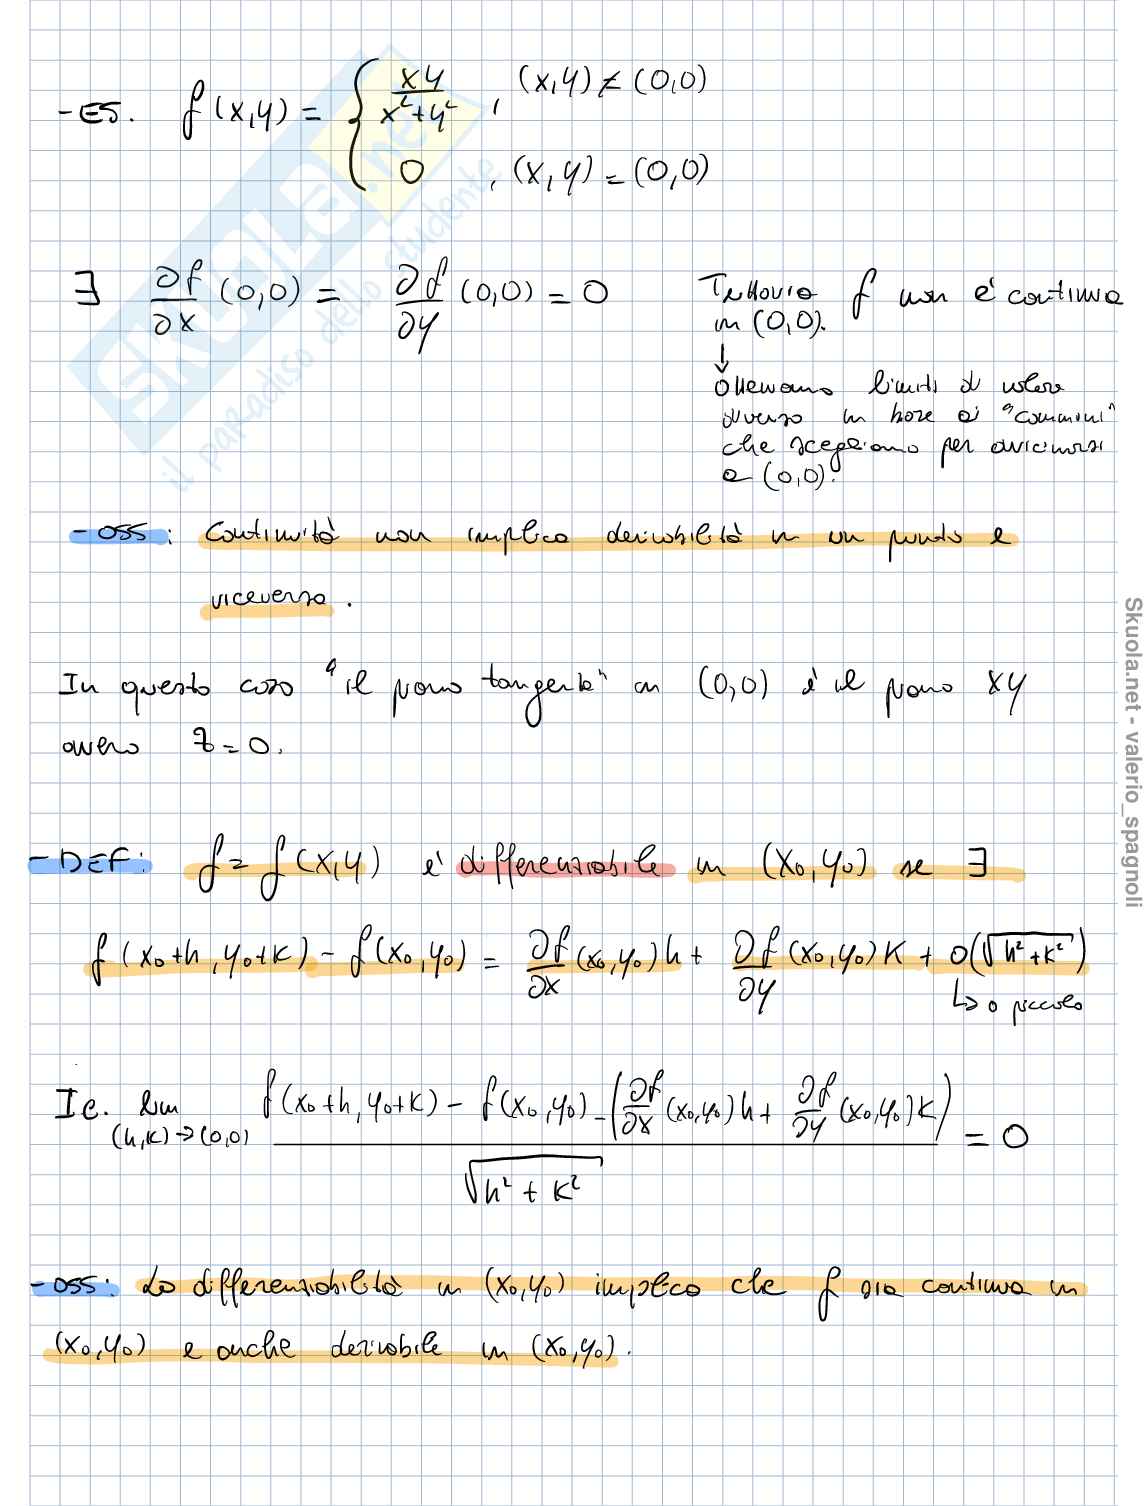 - ES. f(x,y) = { xy / x²+y² , (x,y) ≠ (0,0)
0 , (x,y) = (0,0)
∃ ∂f/∂x (0,0) = ∂f/∂y (0,0) = 0
Tuttavia f non è continua
in (0,0).
↓
Otteniamo limiti di valore
diverso in base ai "cammini"
che scegliamo per avvicinarsi
a (0,0).
- OSS: Continuità non implica derivabilità in un punto e
viceversa.
In questo caso "il piano tangente" in (0,0) è il piano xy
ovvero z = 0.
- DEF: f = f(x,y) è differenziabile in (x₀,y₀) se ∃
f(x₀+h, y₀+k) - f(x₀,y₀) = ∂f/∂x (x₀,y₀)h + ∂f/∂y (x₀,y₀)k + o(√h²+k²)
↳ o piccolo
Ie. lim (h,k)→(0,0) f(x₀+h, y₀+k) - f(x₀,y₀) - (∂f/∂x (x₀,y₀)h + ∂f/∂y (x₀,y₀)k) / √h²+k² = 0
- OSS: La differenziabilità in (x₀,y₀) implica che f sia continua in
(x₀,y₀) e anche derivabile in (x₀,y₀).
SKUOLA.net
il paradiso dello studente
Skuola.net - valerio_spagnoli